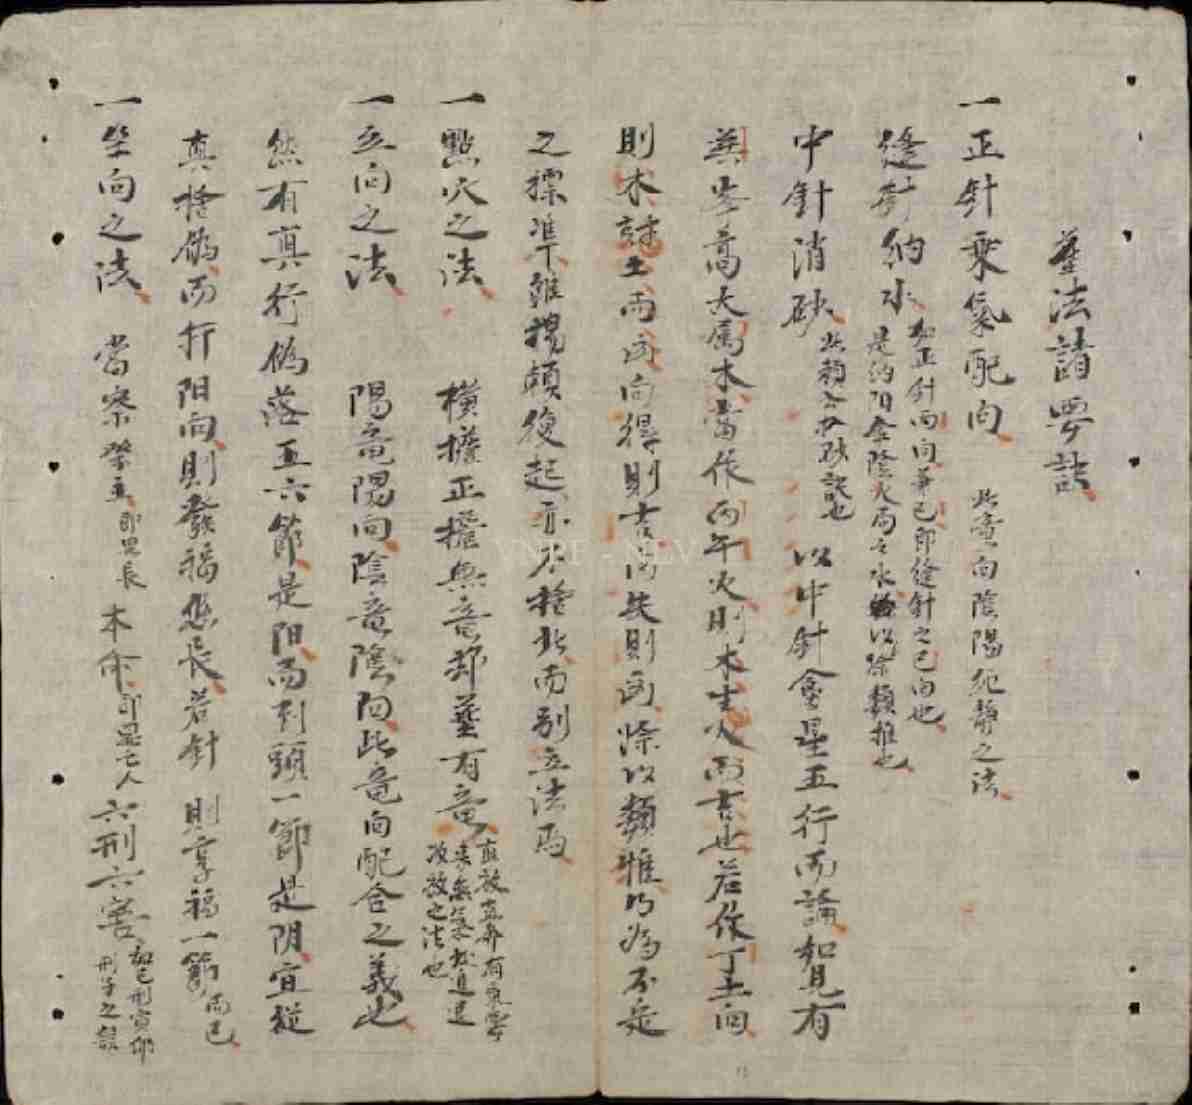 塟法諸要訣
一正針乘氣配向 此竜向陰陽純静之法
縫針納水 如正針丙向兼巳即縫針之巳向也
是納阳金陰火局之水 以除類推也
中針消砂 此類公于砂訣也 以中針盒星五行而論如見有
異峯高大属木當作丙午火則木生火而吉也若作丁土向
則木尅土而凶向得則吉向失則凶除以類推乃為不定
之標準雖楊頼復起亦不捨此而别立法焉
一點穴之法 横擔正擔無竜却塟有竜 直放直奔有氣要
來無氣
改放之法也
一立向之法 陽竜陽向陰竜陰向此竜向配合之義也
然有真行偽落五六節是阳而到頭一節是阴宜從
真捨偽而折阳向則發福悠長若針 則享福一節而已
一坐向之法 當察祭主即男長 本命即是亡人 六刑六害 如巳刑寅卯
刑子之類